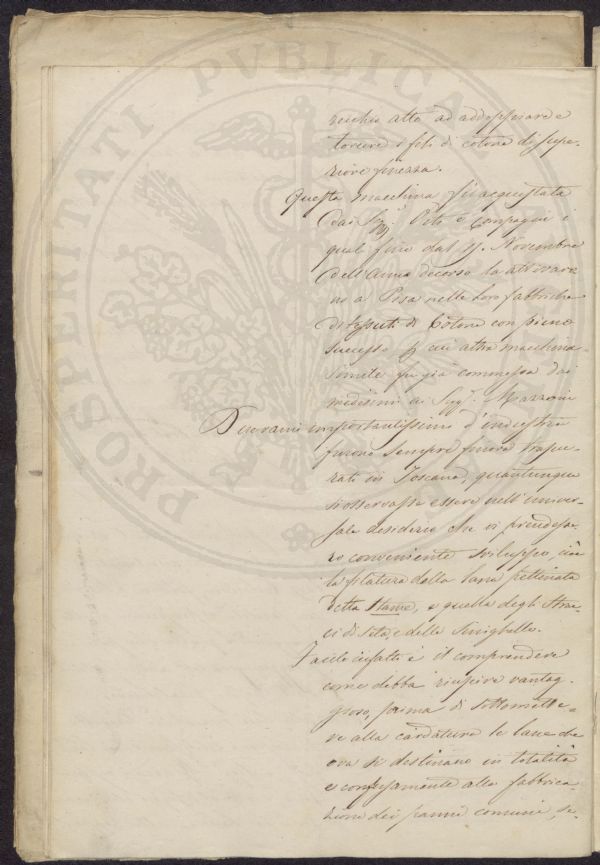 PROSPERITATI PVBLICAE
recchio atto ad addoppiare e
torcere i fili di cotone di supe-
riore finezza.
Questa macchina fu acquistata
dai Sigg.ri e Compagni i
quali fino dal Novembre
dell'Anno decorso la attivaro
no a Pisa nelle loro fabbriche
di tessuti di Cotone con pieno
successo cui altra macchina
simile fu già commessa dai
medesimi ai Sigg.ri Mazzoni
Due rami importantissimi d'industria
furono sempre finora trascu-
rati in Toscana, quantunque
si osservasse essere nell'univer-
sale desiderio che vi prendesse-
ro conveniente sviluppo, cioè
la filatura della lana pettinata
detta Stame, e quella degli Strac-
ci di seta, e delle Sinighelle.
Facile infatti è il comprendere
come debba riuscire vantag-
gioso, prima di sottomette-
re alla cardatura le lane che
ora si destinano in totalità
e confusamente alla fabbrica-
zione dei panni comuni, se-